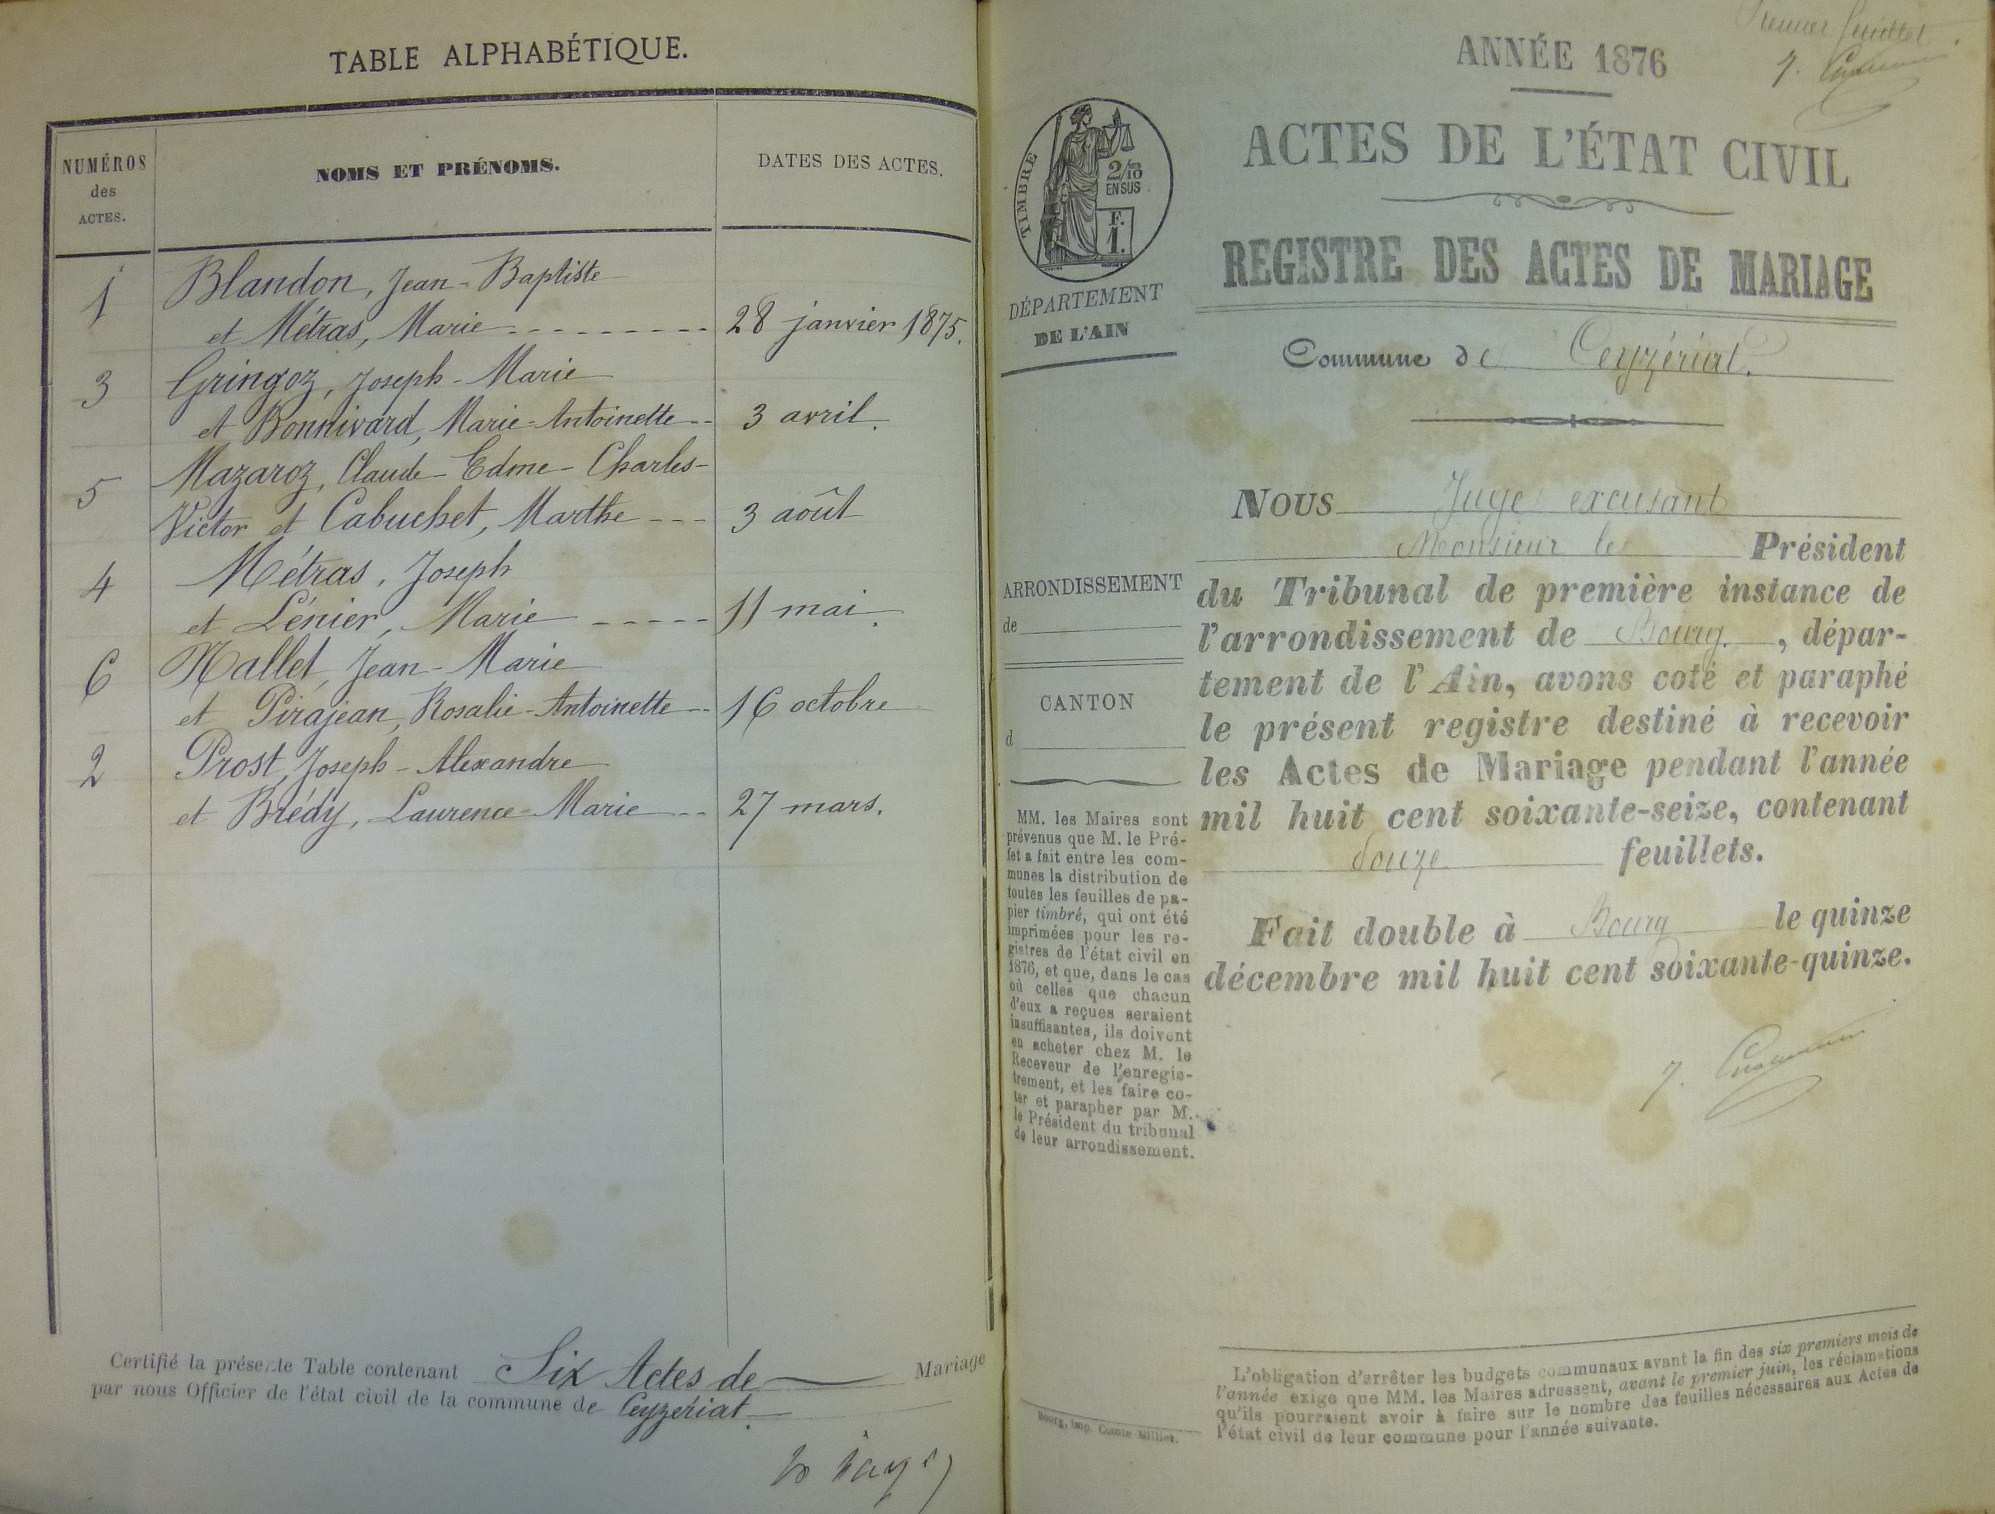 TABLE ALPHABÉTIQUE.
NUMÉROS
des
ACTES.
NOMS ET PRÉNOMS.
DATES DES ACTES.
1
Blandon, Jean-Baptiste
et Métras, Marie
28 janvier 1875.
3
Gringoz, Joseph-Marie
et Bonnivard, Marie-Antoinette
3 avril.
5
Mazaroz, Claude-Edme-Charles-
Victor et Cabuchet, Marthe
3 août
4
Métras, Joseph
et Lénier, Marie
11 mai.
6
Nallet, Jean-Marie
et Pirajean, Rosalie-Antoinette
16 octobre
2
Prost, Joseph-Alexandre
et Brédy, Laurence-Marie
27 mars.
Certifié la présente Table contenant Six Actes de Mariage
par nous Officier de l'état civil de la commune de Ceyzériat.
Premier feuillet
ANNÉE 1876
ACTES DE L'ÉTAT CIVIL
REGISTRE DES ACTES DE MARIAGE
TIMBRE
2/10
EN SUS
F.
1.
DÉPARTEMENT
DE L'AIN
Commune de Ceyzériat.
NOUS Juge excusant
Monsieur le Président
du Tribunal de première instance de
l'arrondissement de Bourg, dépar-
tement de l'Ain, avons coté et paraphé
le présent registre destiné à recevoir
les Actes de Mariage pendant l'année
mil huit cent soixante-seize, contenant
douze feuillets.
Fait double à Bourg le quinze
décembre mil huit cent soixante-quinze.
ARRONDISSEMENT
de
CANTON
d
MM. les Maires sont
prévenus que M. le Pré-
fet a fait entre les com-
munes la distribution de
toutes les feuilles de pa-
pier timbré, qui ont été
imprimées pour les re-
gistres de l'état civil en
1876, et que, dans le cas
où celles que chacun
d'eux a reçues seraient
insuffisantes, ils doivent
en acheter chez M. le
Receveur de l'enregis-
trement, et les faire co-
ter et parapher par M.
le Président du tribunal
de leur arrondissement.
Bourg, Imp. Comte-Milliet.
L'obligation d'arrêter les budgets communaux avant la fin des six premiers mois de
l'année exige que MM. les Maires adressent, avant le premier juin, les réclamations
qu'ils pourraient avoir à faire sur le nombre des feuilles nécessaires aux Actes de
l'état civil de leur commune pour l'année suivante.